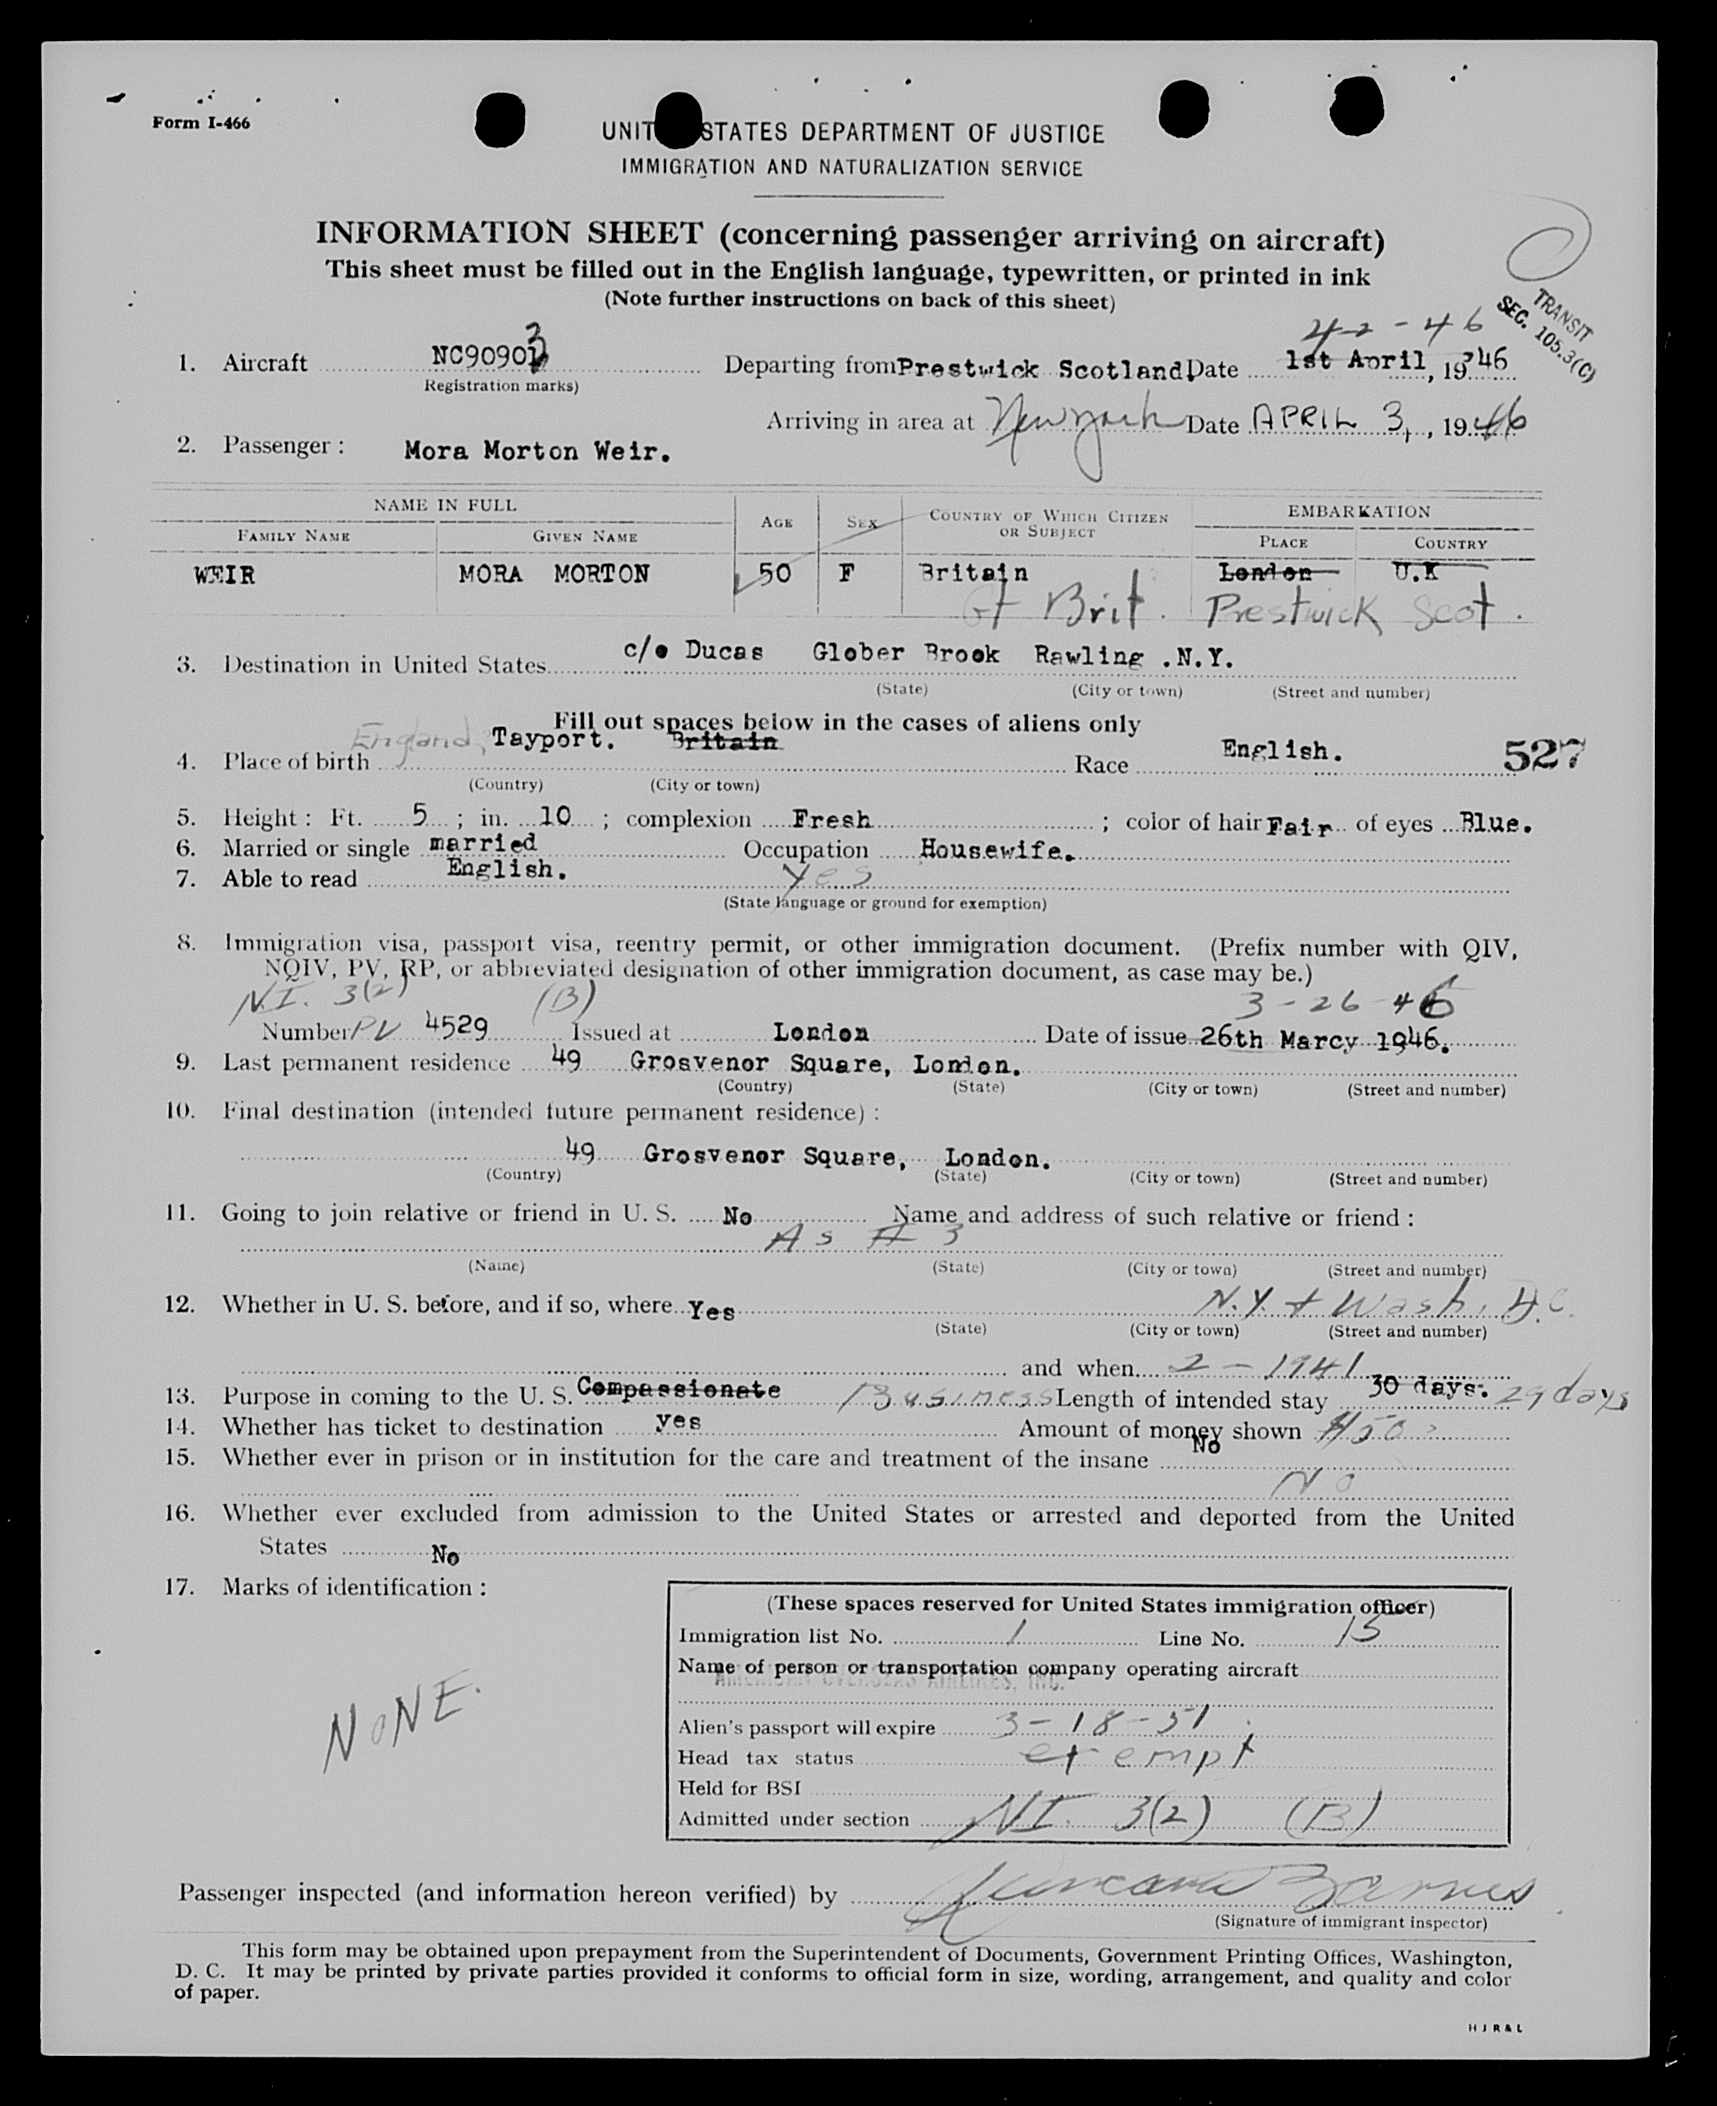 Form I-466
UNIT STATES DEPARTMENT OF JUSTICE
IMMIGRATION AND NATURALIZATION SERVICE
INFORMATION SHEET (concerning passenger arriving on aircraft)
This sheet must be filled out in the English language, typewritten, or printed in ink
(Note further instructions on back of this sheet)
TRANSIT
SEC. 105.3(C)
4-2-46
1. Aircraft NC90903 Departing from Prestwick Scotland Date 1st April, 1946
(Registration marks)
Arriving in area at New York Date APRIL 3, , 1946
2. Passenger : Mora Morton Weir.
NAME IN FULL AGE SEX COUNTRY OF WHICH CITIZEN OR SUBJECT EMBARKATION
FAMILY NAME GIVEN NAME PLACE COUNTRY
WEIR MORA MORTON 50 F Britain London U.K
Gt Brit. Prestwick Scot.
3. Destination in United States c/o Ducas Glober Brook Rawling .N.Y.
(State) (City or town) (Street and number)
Fill out spaces below in the cases of aliens only
4. Place of birth England, Tayport. Britain Race English. 527
(Country) (City or town)
5. Height : Ft. 5 ; in. 10 ; complexion Fresh ; color of hair Fair of eyes Blue.
6. Married or single married Occupation Housewife.
7. Able to read English. Yes
(State language or ground for exemption)
8. Immigration visa, passport visa, reentry permit, or other immigration document. (Prefix number with QIV,
NQIV, PV, RP, or abbreviated designation of other immigration document, as case may be.)
N.I. 3(2) (B) 3-26-46
Number PV 4529 Issued at London Date of issue 26th Marcy 1946.
9. Last permanent residence 49 Grosvenor Square, London.
(Country) (State) (City or town) (Street and number)
10. Final destination (intended future permanent residence) :
49 Grosvenor Square, London.
(Country) (State) (City or town) (Street and number)
11. Going to join relative or friend in U. S. No Name and address of such relative or friend :
As # 3
(Name) (State) (City or town) (Street and number)
12. Whether in U. S. before, and if so, where Yes N.Y. + Wash. D.C.
(State) (City or town) (Street and number)
and when 2 - 1941
13. Purpose in coming to the U. S. Compassionate Business Length of intended stay 30 days. 29 days
14. Whether has ticket to destination yes Amount of money shown
15. Whether ever in prison or in institution for the care and treatment of the insane No
No
16. Whether ever excluded from admission to the United States or arrested and deported from the United
States No
17. Marks of identification :
NONE.
(These spaces reserved for United States immigration officer)
Immigration list No. 1 Line No. 15
Name of person or transportation company operating aircraft
AMERICAN OVERSEAS AIRLINES, INC.
Alien's passport will expire 3-18-51
Head tax status exempt
Held for BSI
Admitted under section NI. 3(2) (B)
Passenger inspected (and information hereon verified) by Barnes
(Signature of immigrant inspector)
This form may be obtained upon prepayment from the Superintendent of Documents, Government Printing Offices, Washington,
D. C. It may be printed by private parties provided it conforms to official form in size, wording, arrangement, and quality and color
of paper.
H J R & L